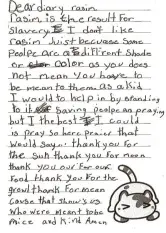 Dear diary rasim
rasim is the result For
slavery. I don't like
rasim Juist because some
Peolpe are a Diffirent Shade
or color as you does
not mean You have to
be mean to them as a kid
I would to help in by standing
to it saving peolpe no praying
but I the best I could
is pray so here peaier that
would say." thank you For
the Sun thank you For moon
thank you our For our
Food thank you For the
growl thank For mean
cause that show's us
who were meant to be
Nice and kind Amen